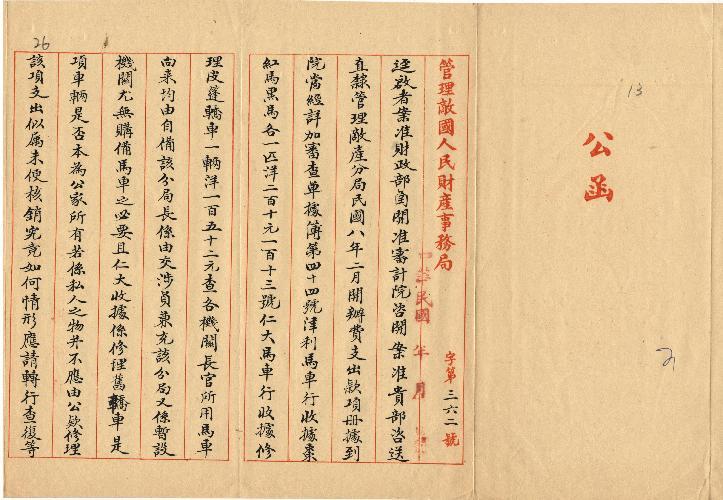 13
公函
管理敵國人民財產事務局
字第三六二號
中華民國 年 月
逕啟者案准財政部函開准審計院咨開案准貴部咨送
直隸管理敵產分局民國八年二月開辦費支出款項册據到
院當經詳加審查單據簿第四十四號津利馬車行收據棗
紅馬黑馬各一匹洋二百十元一百十三號仁大馬車行收據修
理皮蓬轎車一輛洋一百五十二元查各機關長官所用馬車
向來均由自備該分局長係由交涉員兼充該分局又係暫設
機關尤無購備馬車之必要且仁大收據係修理舊轎車是
項車輛是否本為公家所有若係私人之物并不應由公欵修理
該項支出似属未便核銷究竟如何情形應請轉行查復等
26